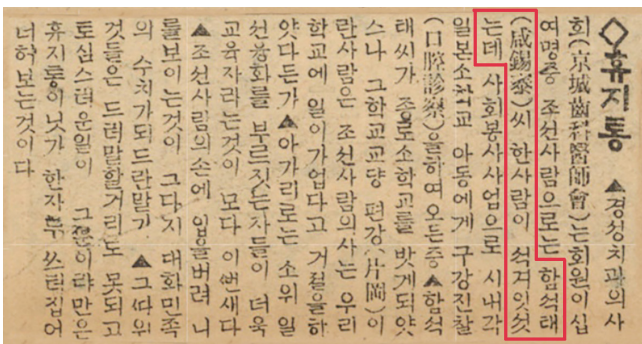 ◇휴지통 ▲경성치과의사
회(京城齒科醫師會)는회원이십
여명중 조선사람으로는 함석태
(咸錫泰)씨 한사람이 석겨잇섯
는데 사회봉사사업으로 시내각
일본소학교 아동에게 구강진찰
(口腔診察)을하여 오든중▲함석
태씨가 종로소학교를 맛게되얏
스나 그학교교댱 편강(片岡)이
란사람은 조선사람의사는 우리
학교에 일이가업다고 거절을하
얏다든가▲아가리로는 소위 일
선융화를 부르짓는자들이 더욱
교육자라는것이 모다 이번새다
▲조선사람의손에 입을버려 니
를보이는것이 그다지 대화민족
의 수치가되드란말가 ▲그따위
것들은 드러말할거리도 못되고
토심스러운일이 그뿐이랴만은
휴지통이닛가 한자루 쓰러집어
너허보는것이다